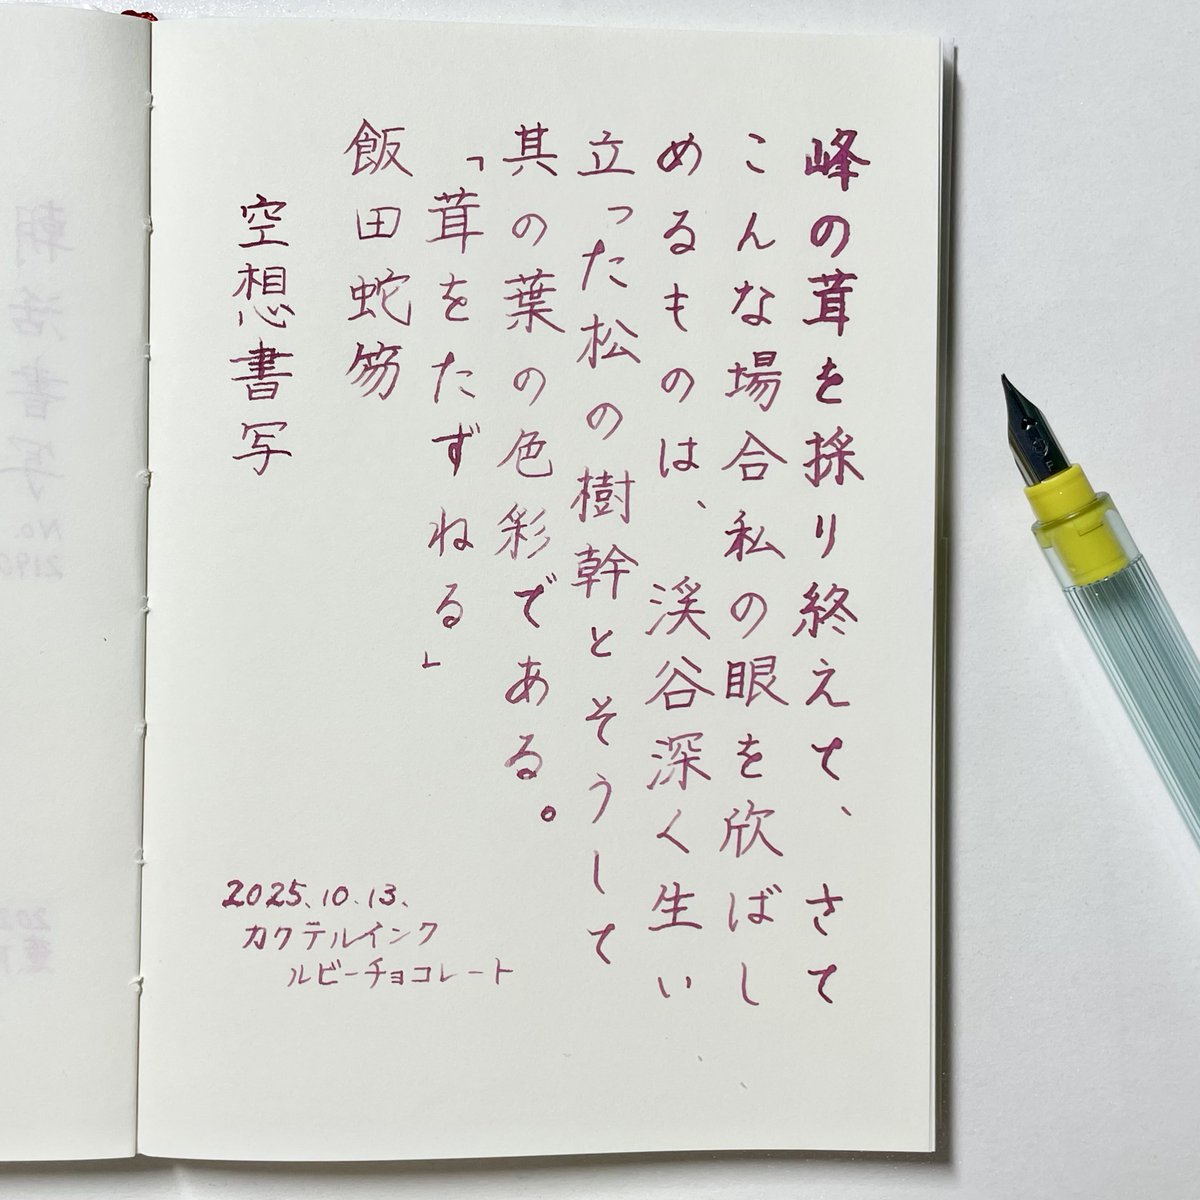 峰の茸を採り終えて、さて
こんな場合私の眼を欣ばし
めるものは、渓谷深く生い
立った松の樹幹とそうして
其の葉の色彩である。
「茸をたずねる」
飯田蛇笏
空想書写
2025.10.13.
カクテルインク
ルビーチョコレート
朝活書写
No.